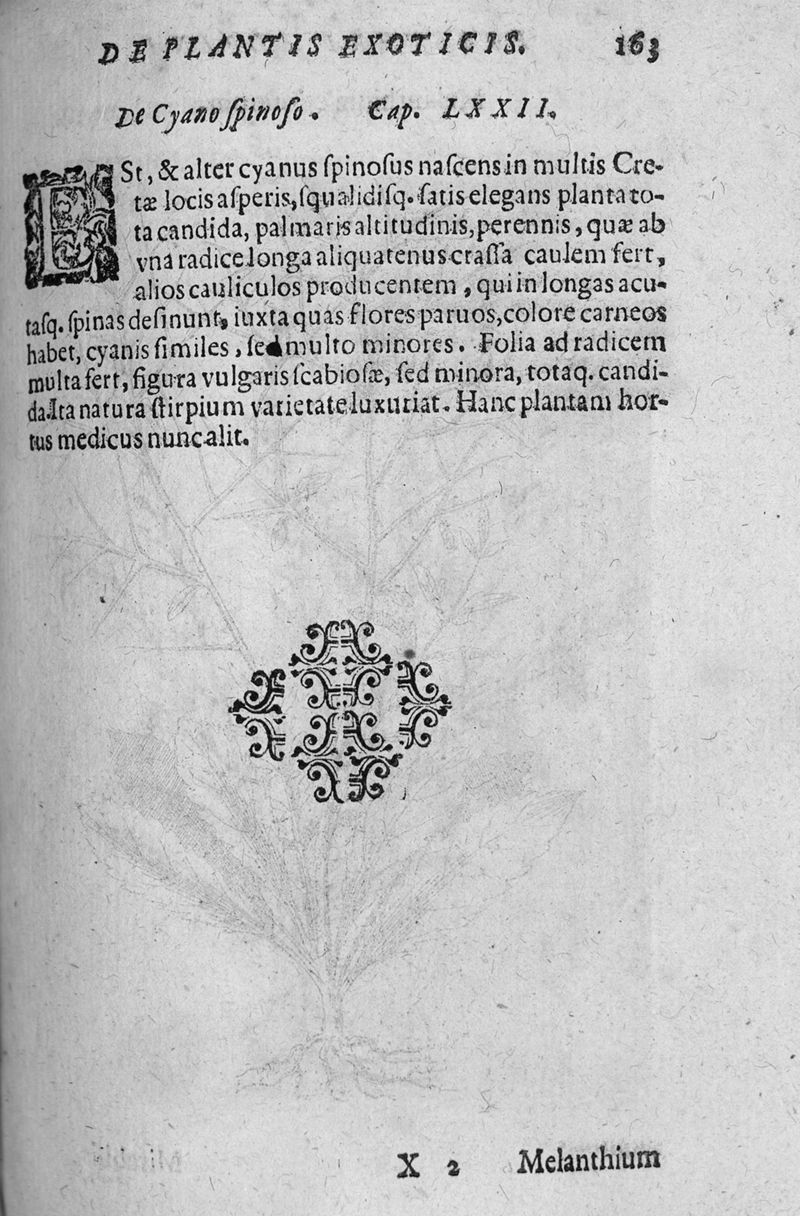 DE PLANTIS EXOTICIS. 163
De Cyano ſpinoſo. Cap. LXXII.
ESt, & alter cyanus ſpinoſus naſcens in multis Cre-
tæ locis aſperis, ſqualidiſq. ſatis elegans planta to-
ta candida, palmaris altitudinis, perennis, quæ ab
vna radice longa aliquatenus craſſa caulem fert,
alios cauliculos producentem, qui in longas acu-
taſq. ſpinas deſinunt, iuxta quas flores paruos, colore carneos
habet, cyanis ſimiles, ſed multo minores. Folia ad radicem
multa fert, figura vulgaris ſcabioſæ, ſed minora, totaq. candi-
da. Ita natura ſtirpium varietate luxuriat. Hanc plantam hor-
tus medicus nunc alit.
X 2 Melanthium